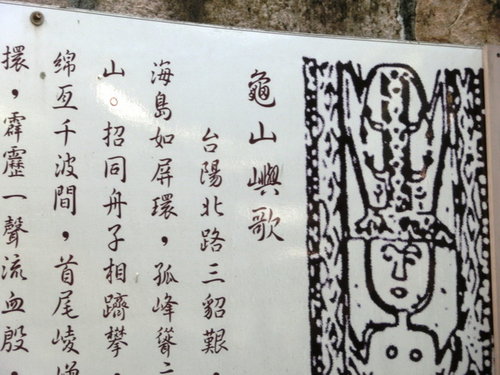 龜山嶼歌
台陽北路三貂艱，
海島如屏環，孤峰聳
山。招同舟子相躋攀，
綿亙千波間，首尾崚
擐，霹靂一聲流血殷，